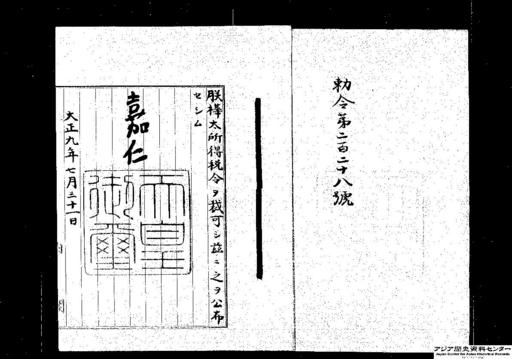 勅令第二百二十八號
朕樺太所得税令ヲ裁可シ茲ニ之ヲ公布
セシム
嘉仁
天皇
御璽
大正九年七月三十一日
アジア歴史資料センター
Japan Center for Asian Historical Records